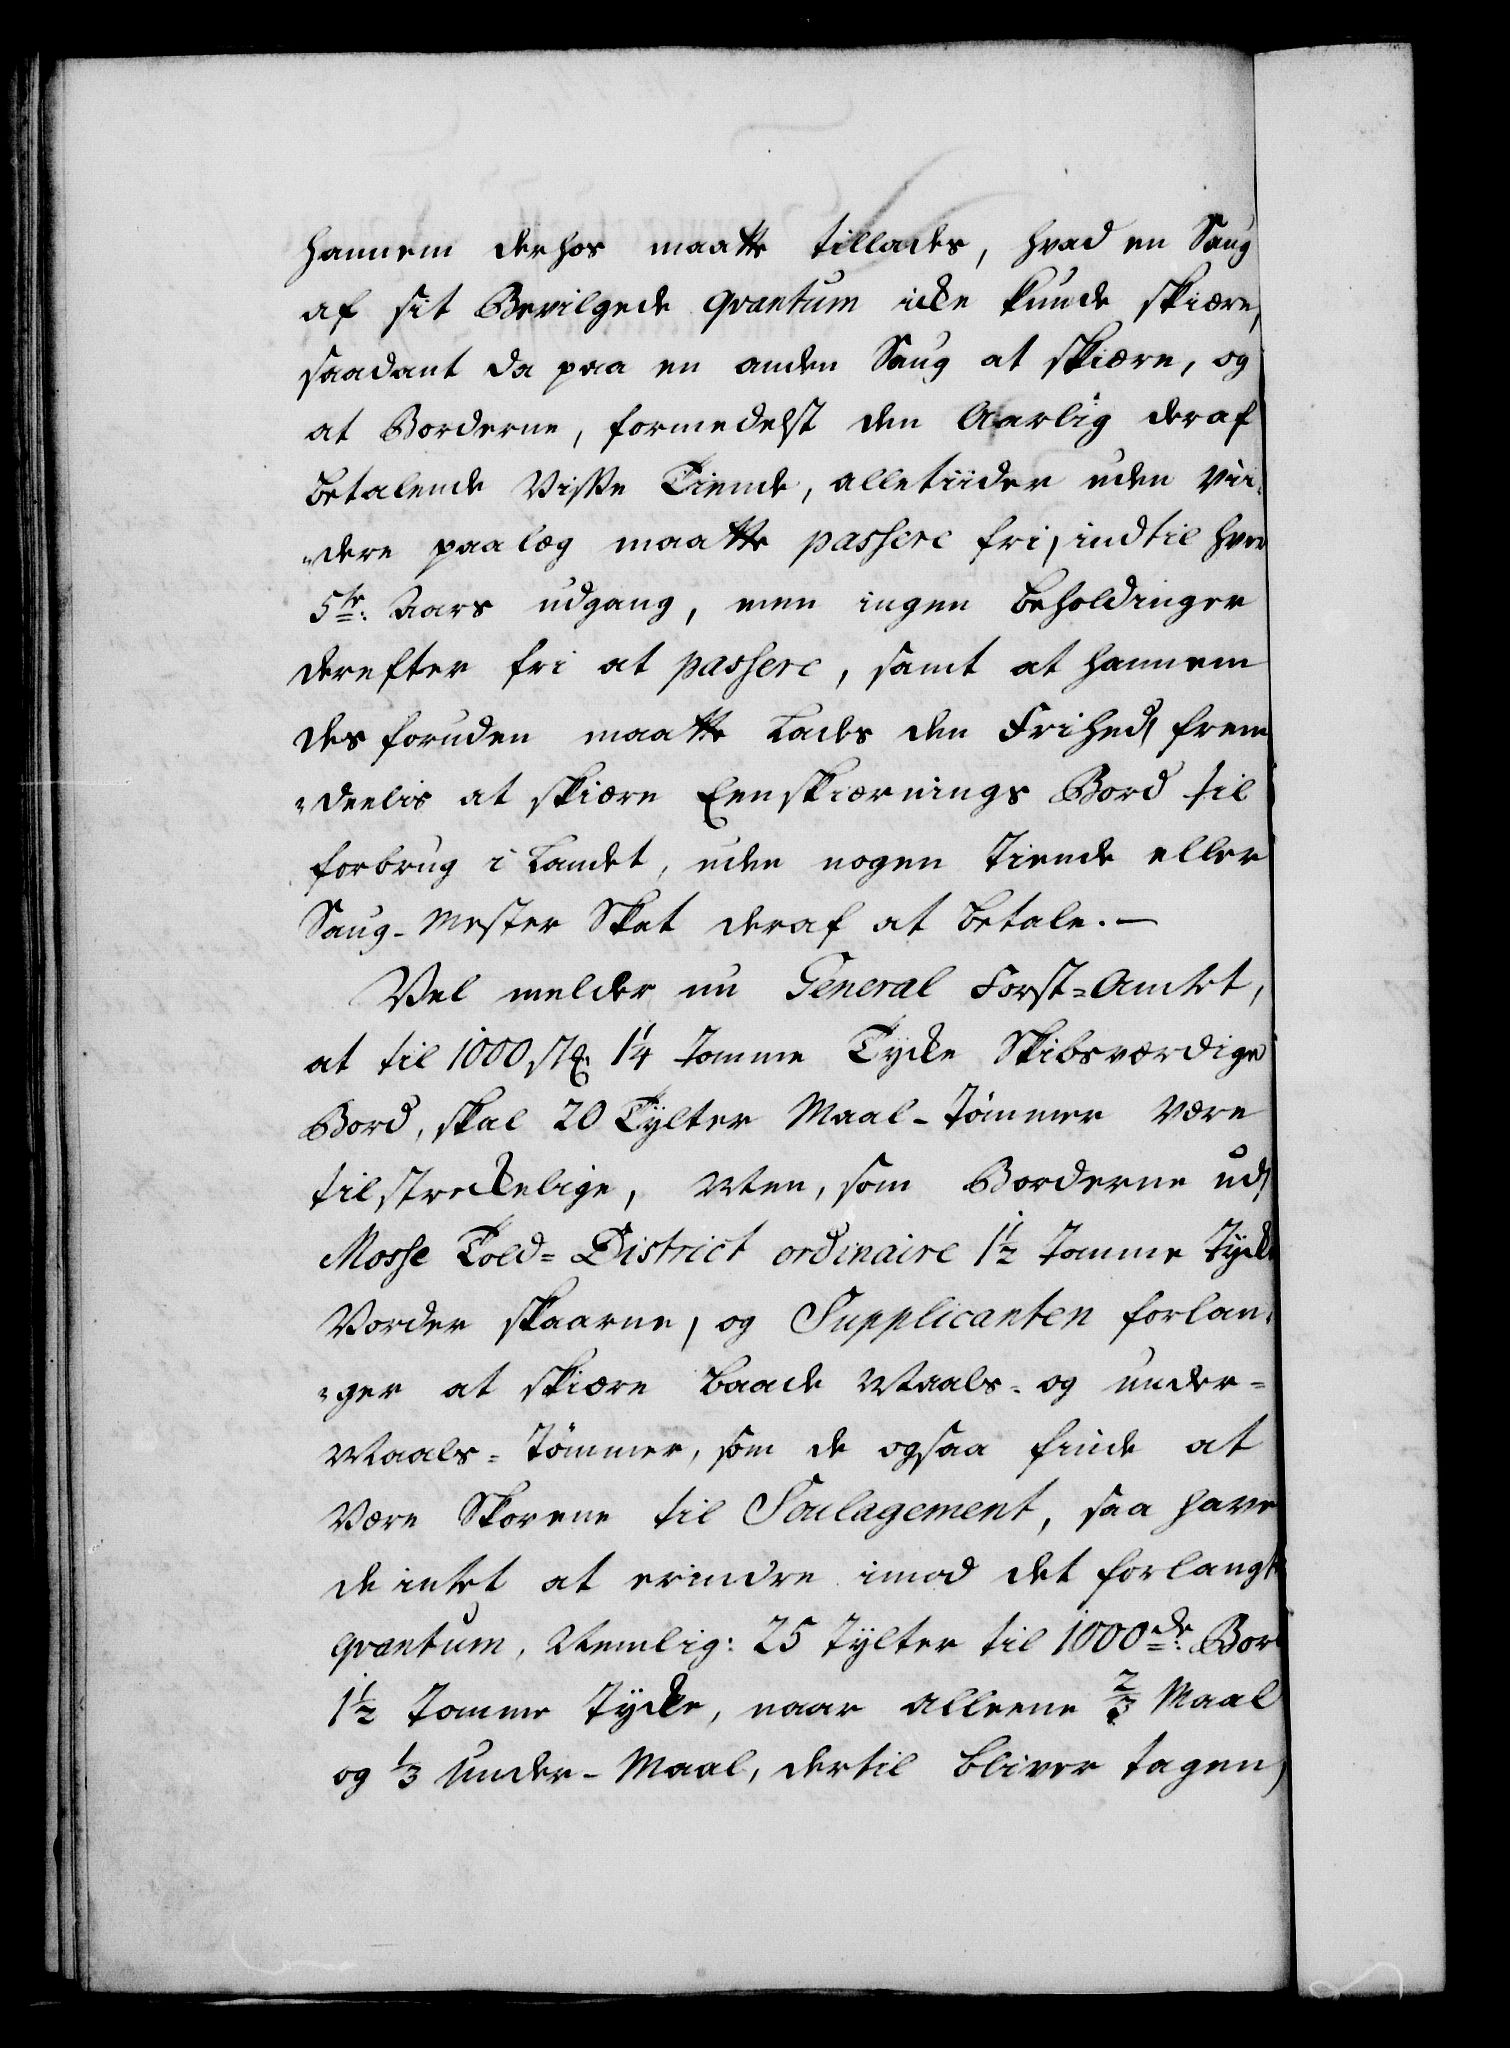 hannem derhos maatte tillades, hvad en Saug
af sit Bevilgede qvantum icke kunde skiære,
saadant da paa en anden Saug at skiære, og
at Borderne, formedelst den Aarlig deraf
betalende Visse Tiende, alletiider uden vii¬
„dere paalæg maatte passere fri, indtil hver
5te: Aars udgang, men ingen beholdinger
derefter fri at passere, samt at hannem
desforuden maatte lades den Frihed, frem¬
„deelis at skiære Eenskiærnings Bord til
forbrug i Landet, uden nogen Tiende eller
Saug-Mester Skat deraf at betale. —
Vel melder nu General Forst=Amtet,
at til 1000 stk: 1¼ Tomme Tycke Skibsværdige
Bord, skal 20 Tylter Maal-Tømmer være
tilstreckelige, Men, som Borderne ud
Mosse Told=District ordinaire 1½ Tomme Tycke
Vorder skaarne, og Supplicanten forlan¬
„ger at skiære baade Maals- og under=
Maals=Tømmer, som de ogsaa finde at
være Skovene til Soulagement, saa have
de intet at erindre imod det forlangte
qvantum, Nemlig: 25 Tylter til 1000de: Bord
1½ Tomme Tycke, naar alleene ⅔ Maal
og ⅓ Under-Maal, dertil bliver tagen,